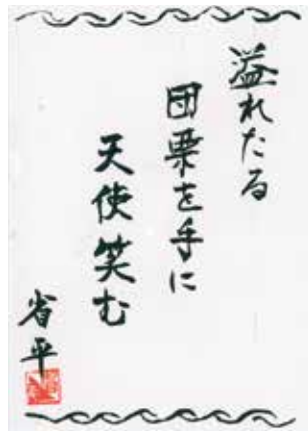 溢れたる
団栗を手に
天使笑む
省平